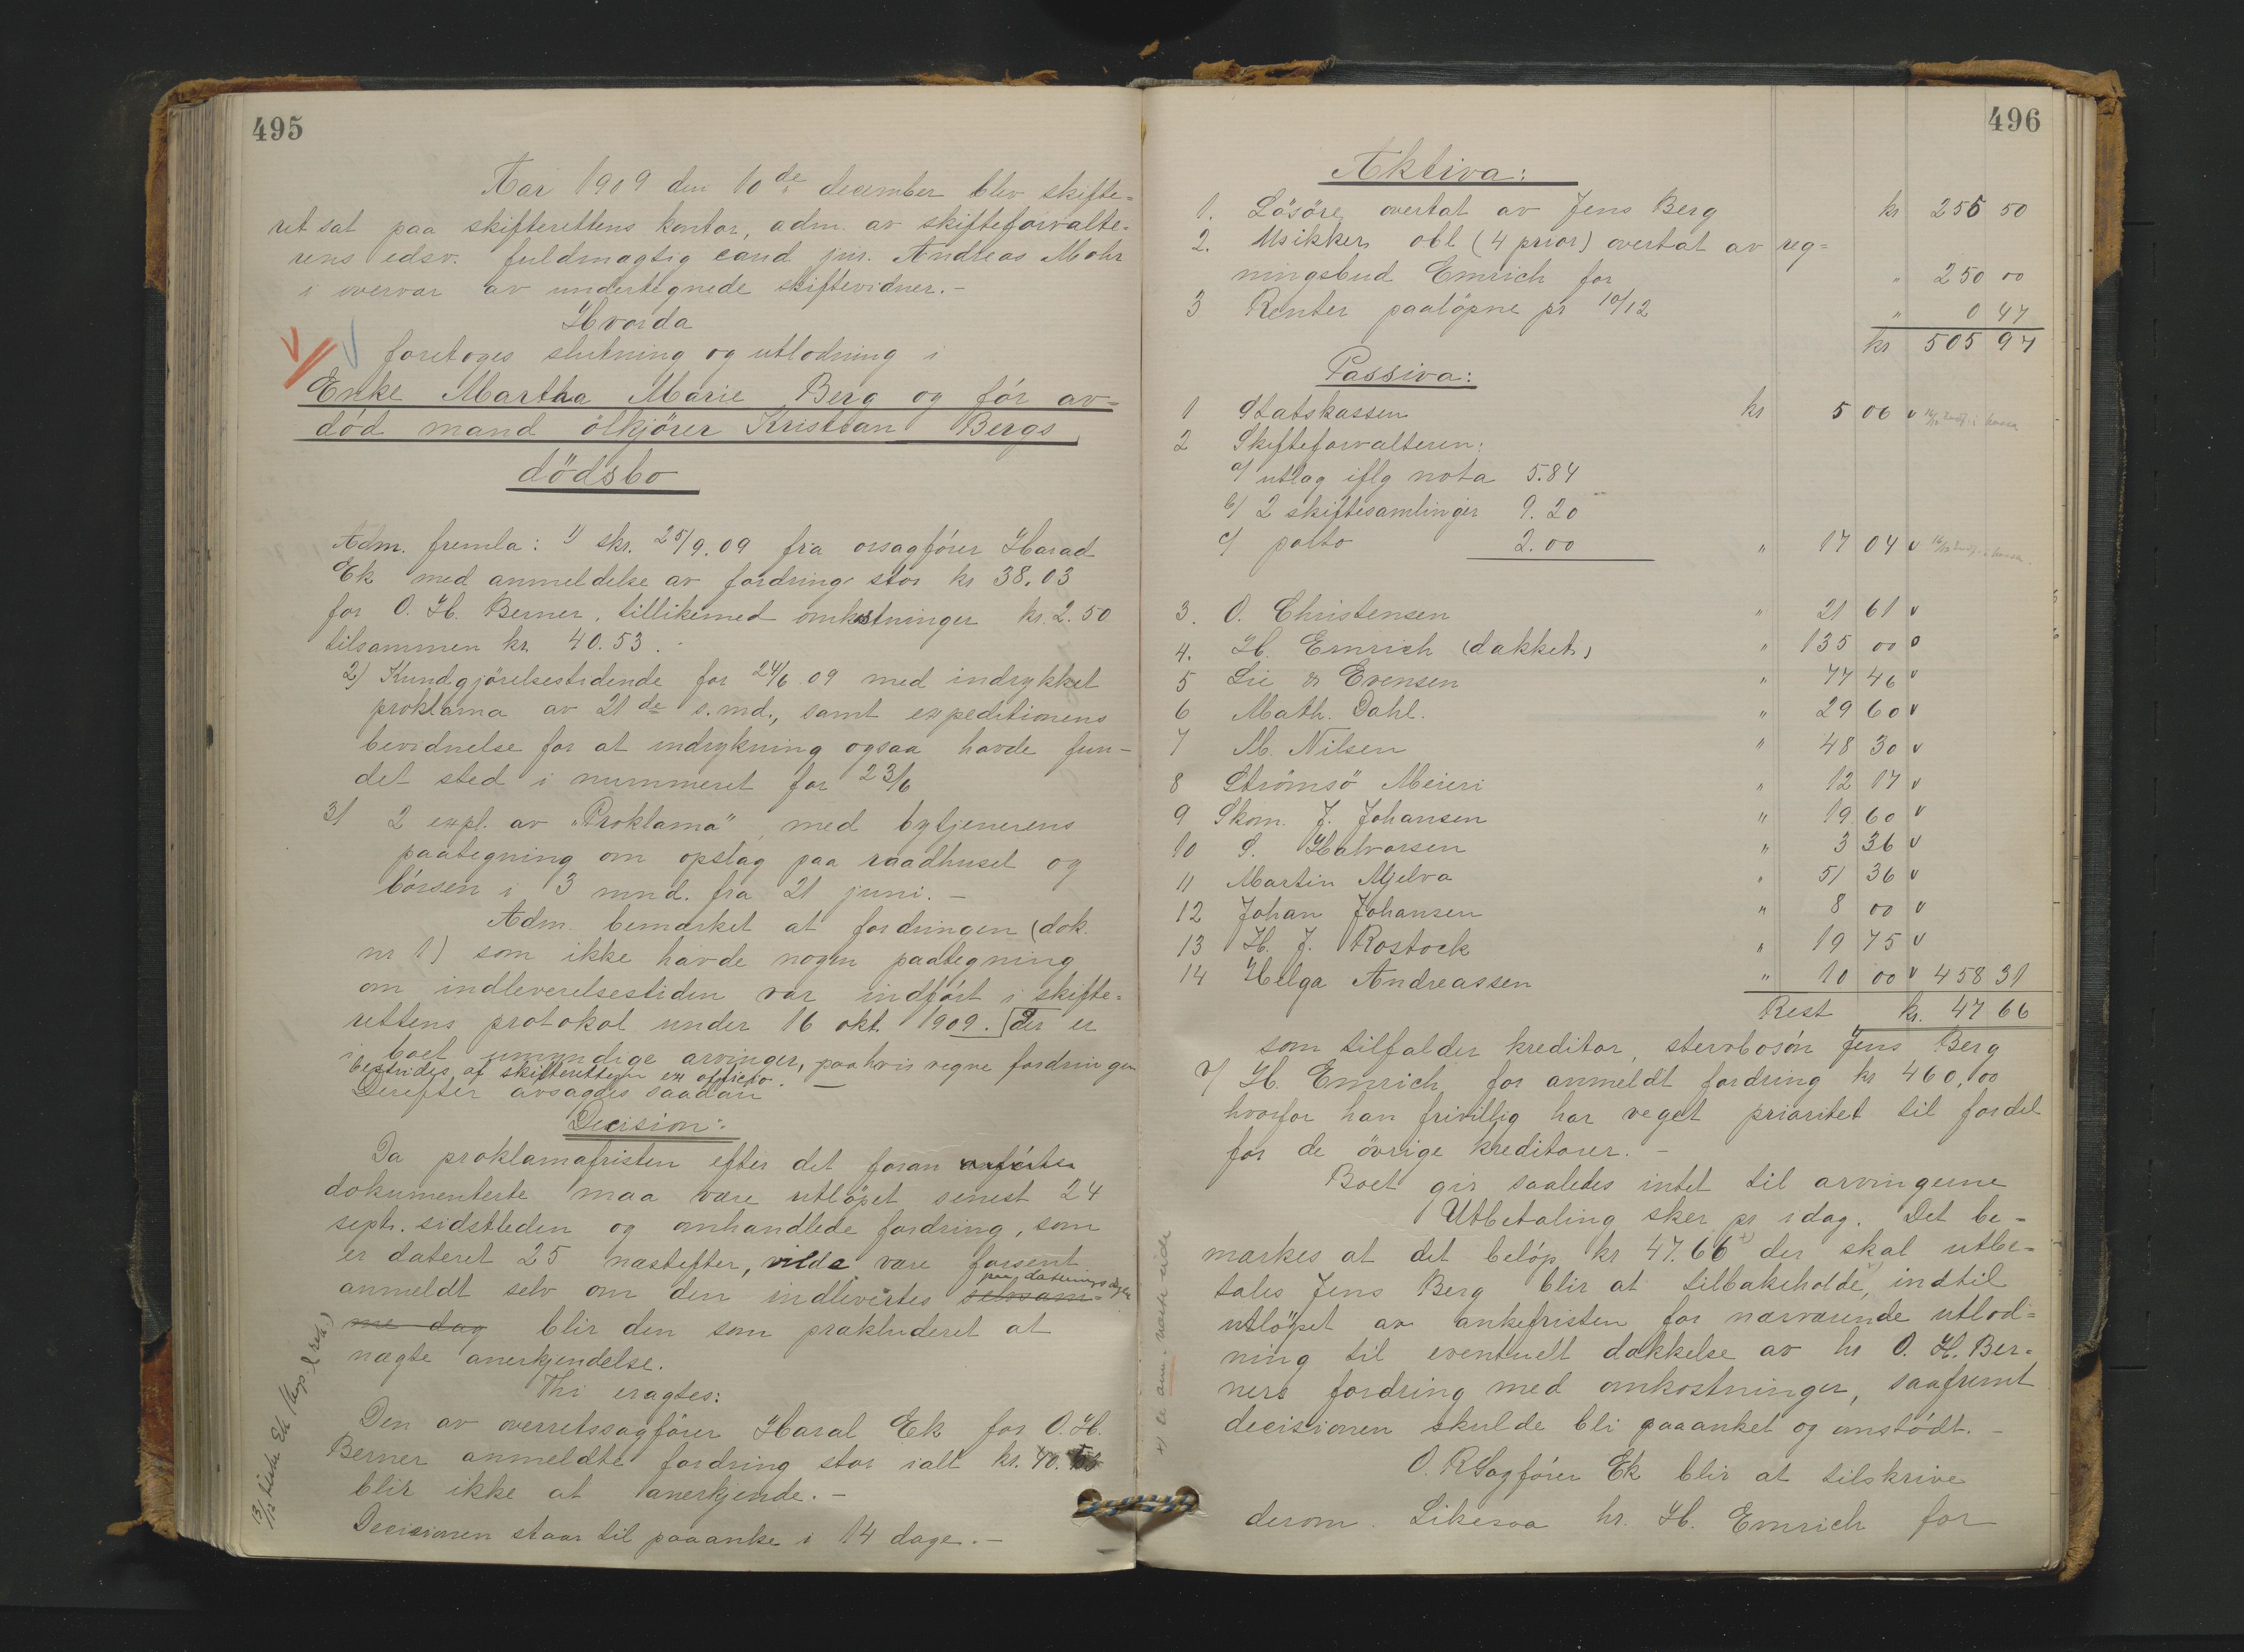 495
Aar 1909 den 10de december blev skifte=
ret sat paa skifterettens kontor, adm. av skifteforvalte=
rens edsv. fuldmægtig cand jur. Andreas Mohr
i overvær av undertegnede skiftevidner.-
Hvorda
foretoges slutning og utlodning i
Enke Martha Marie Berg og før av=
død mand ølkjører Kristian Bergs
dødsbo
Adm. fremla: 1) skr. 25/9.09 fra orsagfører Harad
Ek med anmeldelse av fordring stor kr 38.03
for O. H. Berner, tillikemed omkostninger kr. 2.50
tilsammen kr 40.53.
2) Kundgjørelsestidende for 24/6 09 med indrykket
proklama av 21de s.md., samt expeditionens
bevidnelse for at indrykning ogsaa havde fun-
det sted i nummeret for 23/6
3) 2 expl. av "Proklama", med bytjenerens
paategning om opslag paa raadhuset og
børsen i 3 mnd. fra 21 juni.-
Adm. bemærket at fordringen (dok.
nr 1) som ikke havde nogen paategning
om indleverelsestiden var indført i skifte=
rettens protokol under 16 okt 1909. Der er
i boet umyndige arvinger, paa hvis vegne fordringen
bestrides af skifteretten ex officio.
Derefter avsagdes saadan
Decision:
Da proklamafristen efter det foran anførte
dokumenterte maa være utløpet senest 24
septr. sidstleden og omhandlede fordring, som
er dateret 25 næstefter, vilde være forsent
anmeldt selv om den indlevertes selvsam= paa dateringsdagen
me dag blir den som prækluderet at
nægte anerkjendelse.
Thi eragtes:
Den av overretssagfører Haral Ek for O. H.
Berner anmeldte fordring stor ialt kr. 40.53
blir ikke at anerkjende.-
Decisionen staar til paaanke i 14 dage.-
496
Aktiva:
1. Løsøre overtat av Jens Berg kr 255 50
2. Usikker obl (4 prior) overtat av reg=
ningsbud Emrich for " 250 00
3 Renter paaløpne pr 10/12 " 0 47
kr 505 97
Passiva:
1 Statskassen kr 5 06 v
2 Skifteforvalteren:
a/ utlag iflg nota 5.84
b/ 2 skiftesamlinger 9.20
c/ porto 2.00 " 17 04 v
3. O. Christensen " 21 61 v
4. H. Emrich (dækket) " 135 00
5 Lie & Evensen " 77 46 v
6 Math. Dahl. " 29 60 v
7 M. Nilsen " 48 30 v
8 Strømsø Meieri " 12 17 v
9 Skom. J. Johansen " 19 60 v
10 S. Halvorsen " 3 36 v
11 Martin Mjelva " 51 36 v
12 Johan Johansen " 8 00 v
13 H. J. Rostock " 19 75 v
14 Helga Andreassen " 10 00 v 458 31
Rest kr. 47 66
som tilfalder kreditor, stervbosøn Jens Berg
H. Emrich for anmeldt fordring kr 460,00
hvorfor han frivillig har veget prioritet til fordel
for de øvrige kreditorer.-
Boet gir saaledes intet til arvingerne
Utbetaling sker pr idag. Det be-
mærkes at det beløp kr 47.66 der skal utbe=
tales Jens Berg blir at tilbakeholde, indtil
utløpet av ankefristen for nærværende utlod=
ning til eventuelt dækkelse av hr O. H. Ber=
ners fordring med omkostninger, saafremt
decisionen skulde bli paaanket og omstødt.-
O. R Sagfører Ek blir at tilskrive
derom. Likesaa hr. H. Emrich for